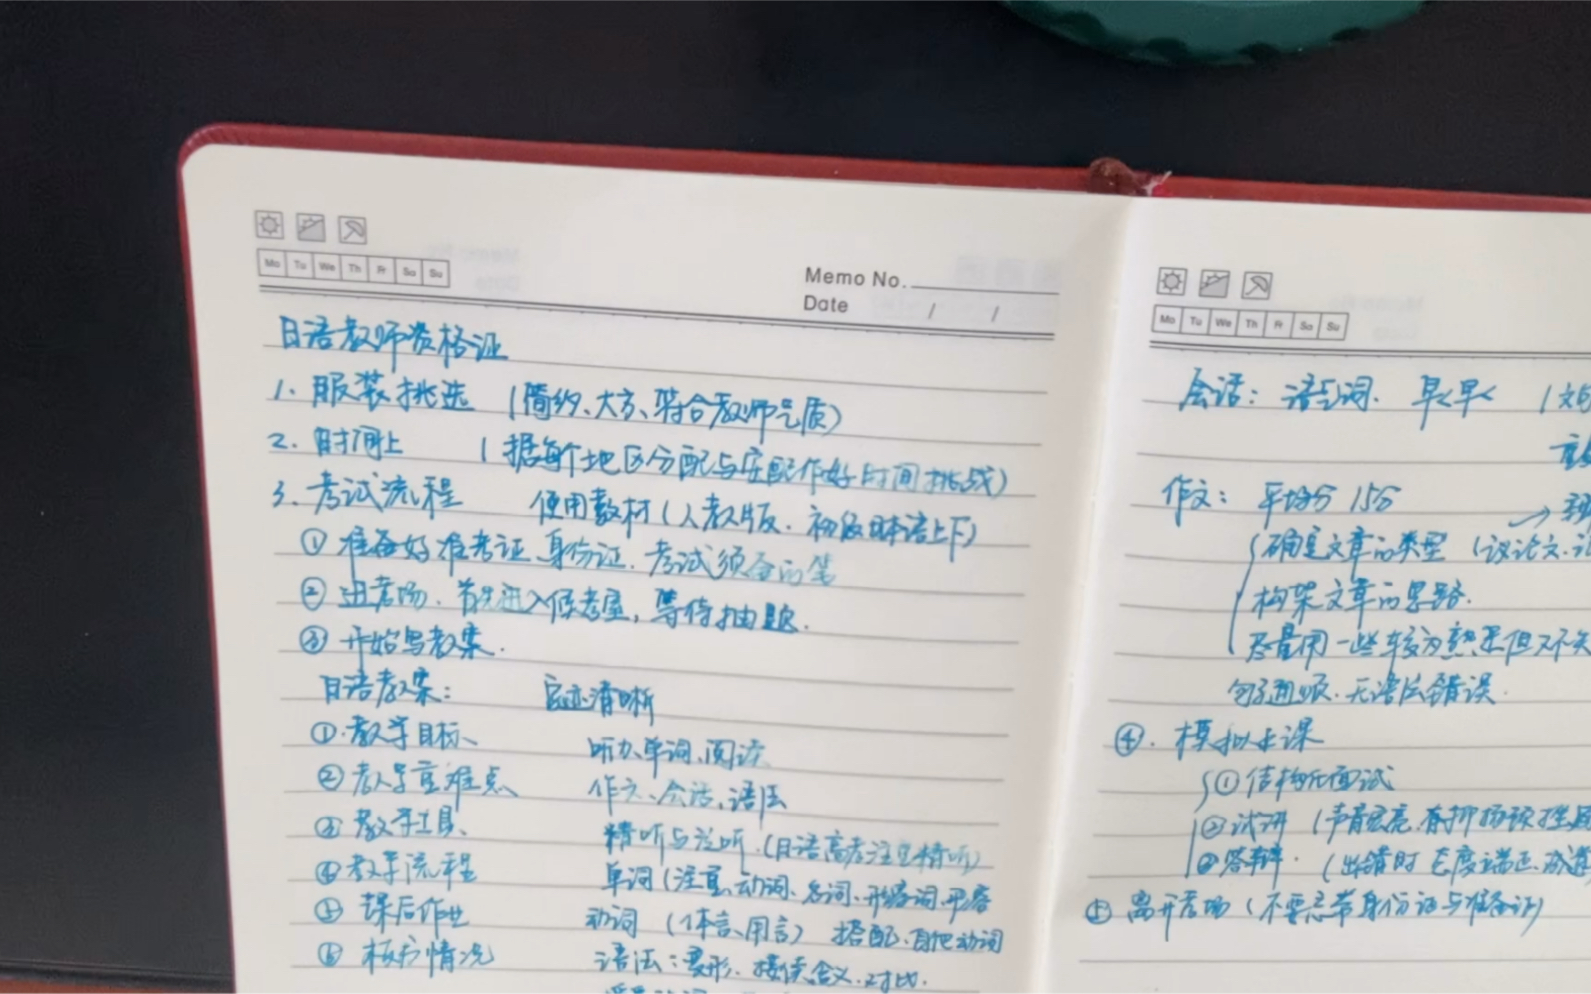 Mo Tu We Th Fr Sa Su
Memo No.
Date / /
日语教师资格证
1. 服装挑选 (简约、大方、符合教师气质)
2. 时间上 (据每个地区分配与安配作好时间挑战)
3. 考试流程 使用教材(人教版、初级日本语上下)
① 准备好准考证、身份证、考试须备的笔
② 进考场、首先进入候考室,等待抽题.
③ 开始写教案.
日语教案: 字迹清晰
①.教学目标、 听力、单词、阅读、
② 教学重难点、 作文、会话、语法
③ 教学工具、 精听与泛听.(日语高考注重精听)
④ 教学流程 单词(注重、动词、名词、形容词、形容
⑤ 课后作业 动词 (体言、用言) 搭配、自他动词
⑥ 板书情况 语法:变形、接续、含义、对比.
Mo Tu We Th Fr Sa Su
会话: 语气词、
作文: 平均分 15分
确定文章的类型 (议论文、
构架文章的思路.
尽量用一些较为熟悉但不失
句子通顺、无语法错误.
④. 模拟上课
① 结构化面试
② 试讲 (声音宏亮、有抑扬顿挫
③ 答辩. (出错时 态度端正、
⑤ 离开考场 (不要忘带身份证与准备证)